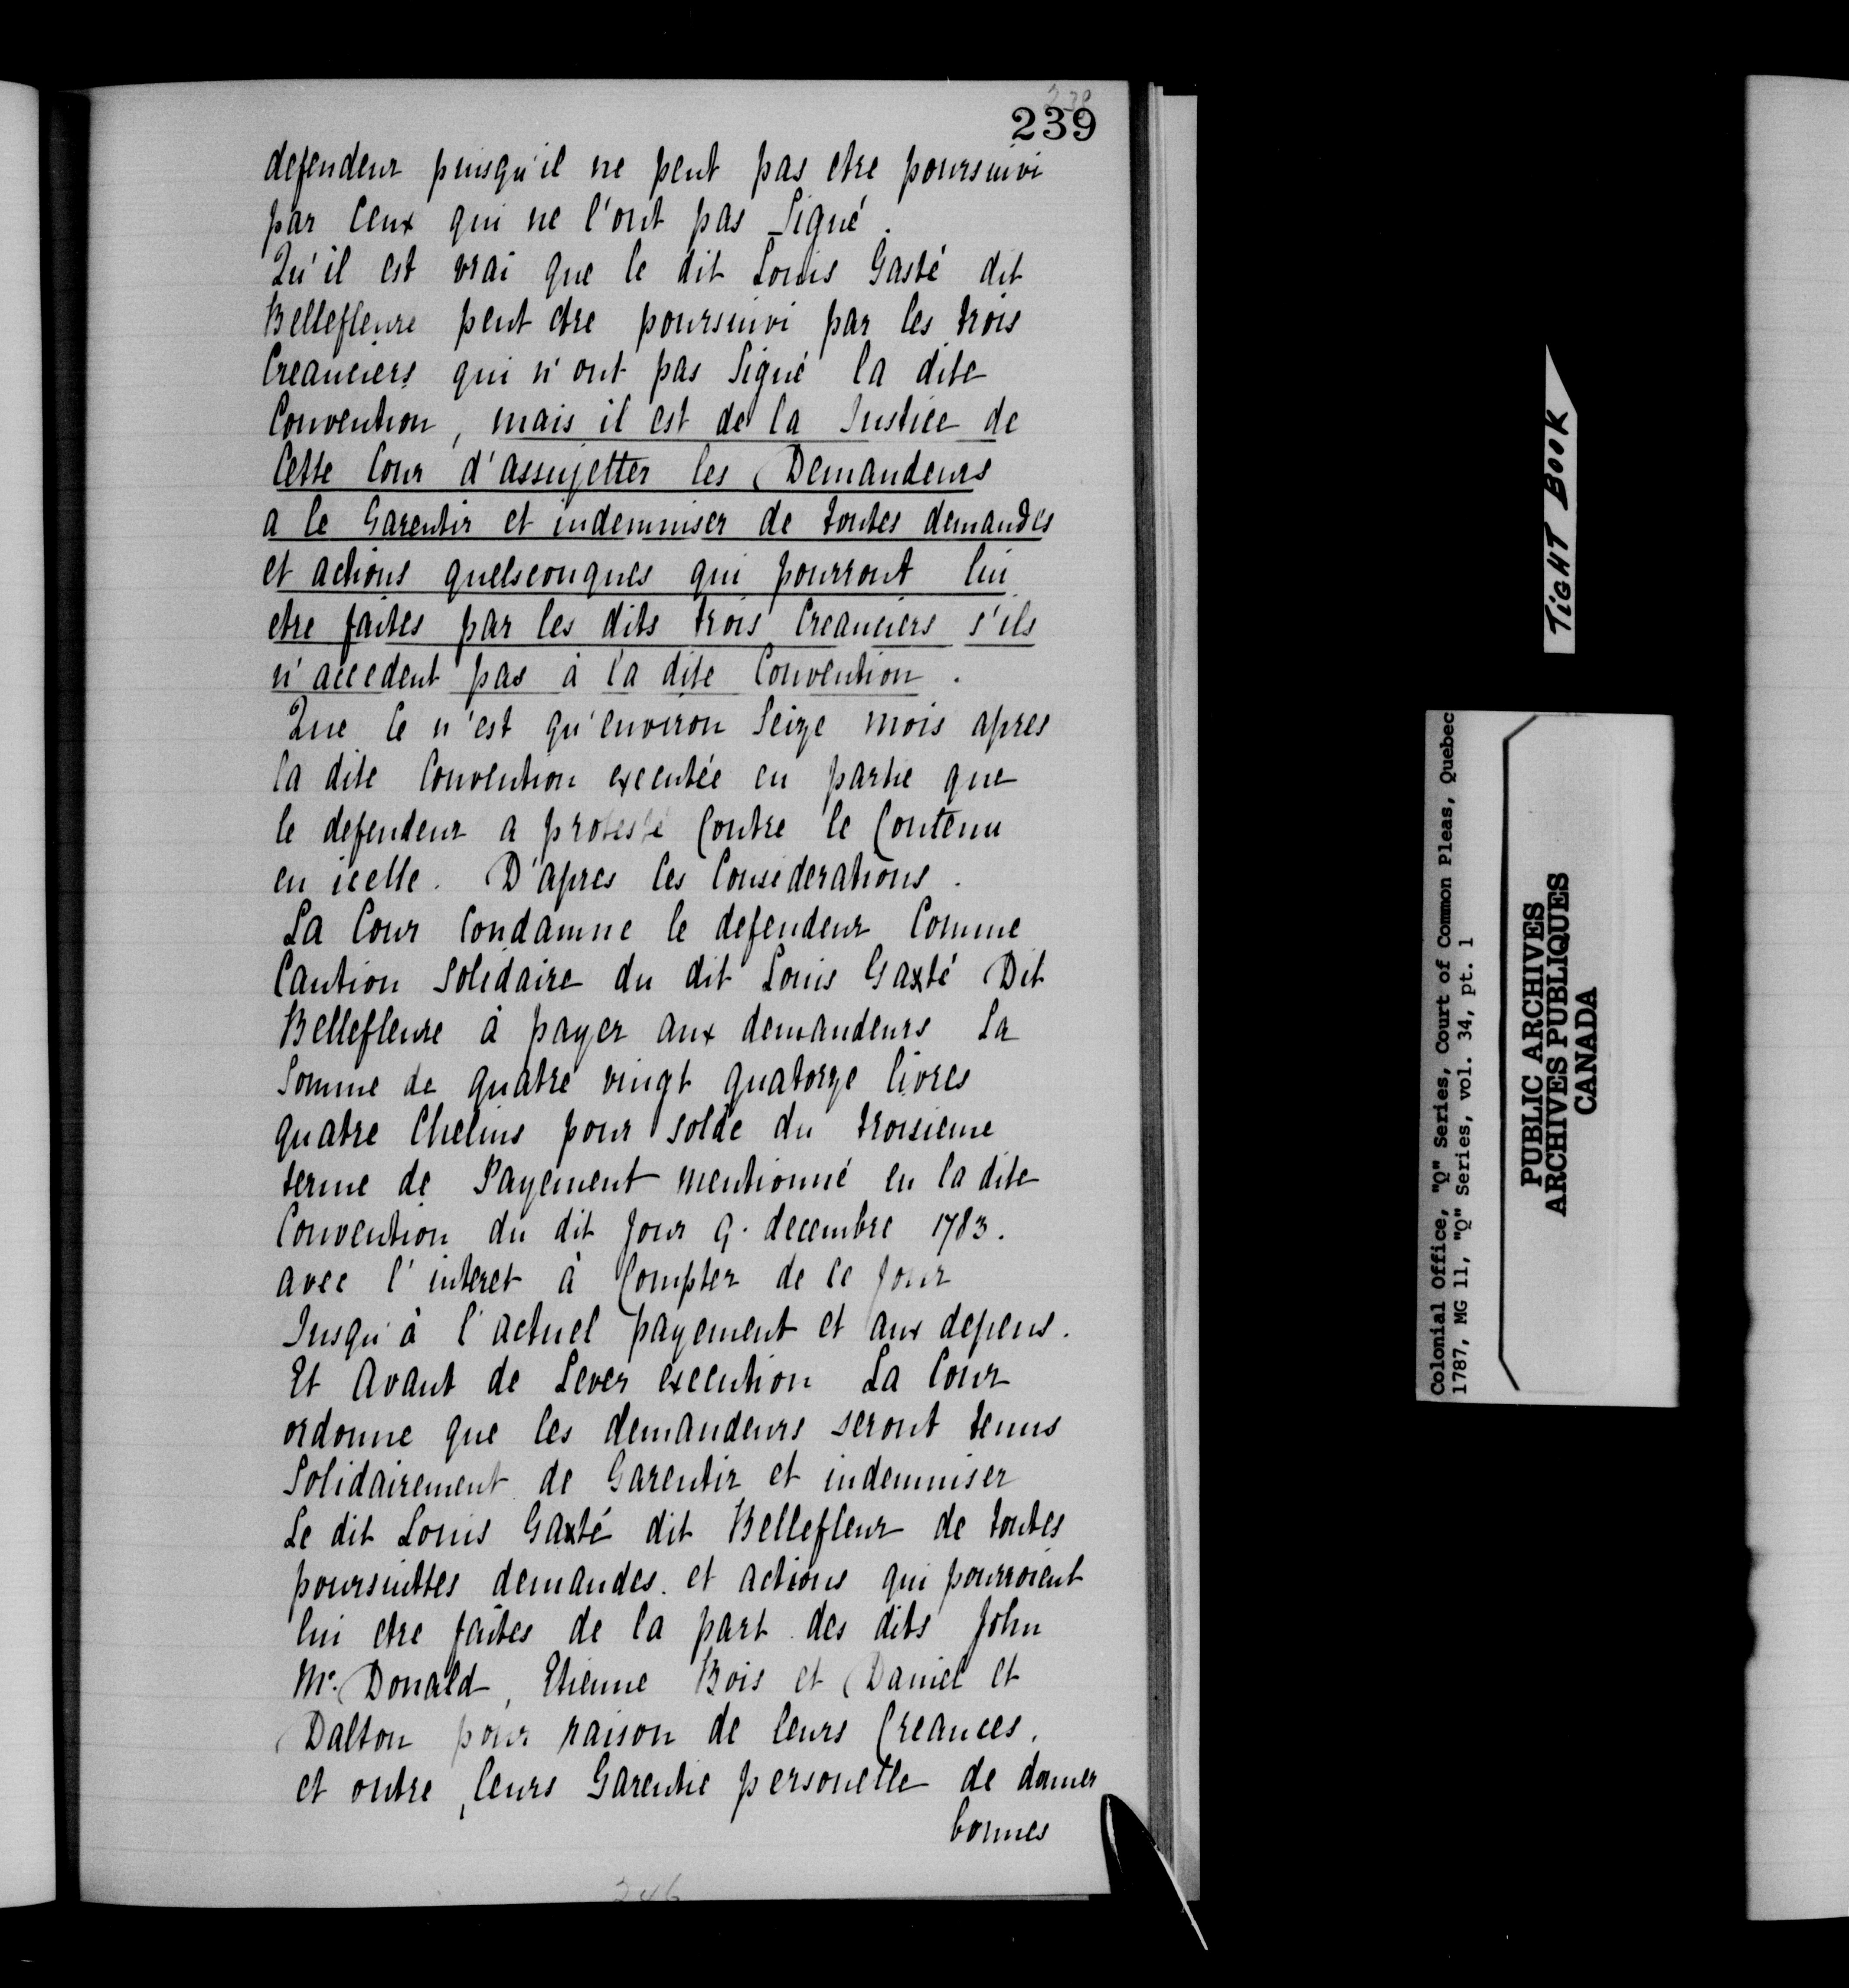 239
239
defendeur puisqu'il ne peut pas etre poursuivi
par Ceux qui ne l'ont pas Signé.
Qu'il est vrai que le dit Louis Gasté dit
Bellefleure peut etre poursuivi par les trois
Creanciers qui n'ont pas Signé la dite
Convention, mais il est de la Justice de
Cette Cour d'assujetter les Demandeurs
a le Garentir et indemniser de toutes demandes
et actions quelsconques qui pourront lui
etre faites par les dits trois Creanciers s'ils
n'accedent pas à la dite Convention.
Que Ce n'est qu'environ Seize mois apres
la dite Convention executée en partie que
le defendeur a protesté Contre le Contenu
en icelle. D'apres Ces Considerations.
La Cour Condamne le defendeur Comme
Caution Solidaire du dit Louis Gaxté Dit
Bellefleure à payer aux demandeurs La
Somme de quatre vingt quatorze livres
quatre Chelins pour solde du troisieme
terme de Payement mentionné en la dite
Convention du dit Jour 9. decembre 1783.
avec l'interet à Compter de ce Jour
Jusqu'à l'actuel payement et aux depens.
Et Avant de Lever execution La Cour
ordonne que les demandeurs seront tenus
Solidairement de Garentir et indemniser
Le dit Louis Gaxté dit Bellefleur de toutes
poursuittes demandes. et actions qui pourroient
lui etre faites de la part des dits John
Mc. Donald, Etienne Bois et Daniel et
Dalton pour raison de leurs Creances.
et outre, leurs Garentie personelle de donner
bonnes
246
TIGHT BOOK
Colonial Office, "Q" Series, Court of Common Pleas, Quebec
1787, MG 11, "Q" Series, vol. 34, pt. 1
PUBLIC ARCHIVES
ARCHIVES PUBLIQUES
CANADA